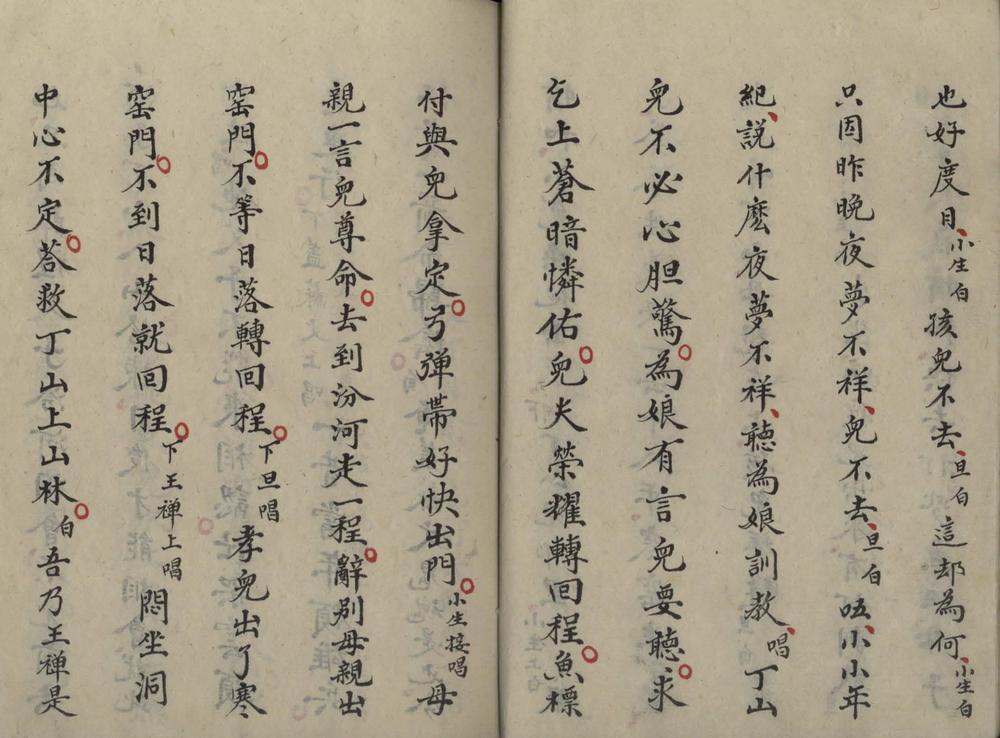 也好度日小生白孩兒不去旦白這却為何小生白
只因昨晚夜夢不祥兒不去旦白唔小小年
紀說什麽夜夢不祥聽為娘訓教唱丁山
兒不必心胆驚為娘有言兒要聽求
乞上蒼暗憐佑兒夫榮耀轉回程魚標
付與兒拿定弓弹帶好快出門小生接唱母
親一言兒尊命去到汾河走一程辭别母親出
窑門不等日落轉回程下旦唱孝兒出了寒
窑門不到日落就回程下王禅上唱悶坐洞
中心不定荅救丁山上山林白吾乃王禅是